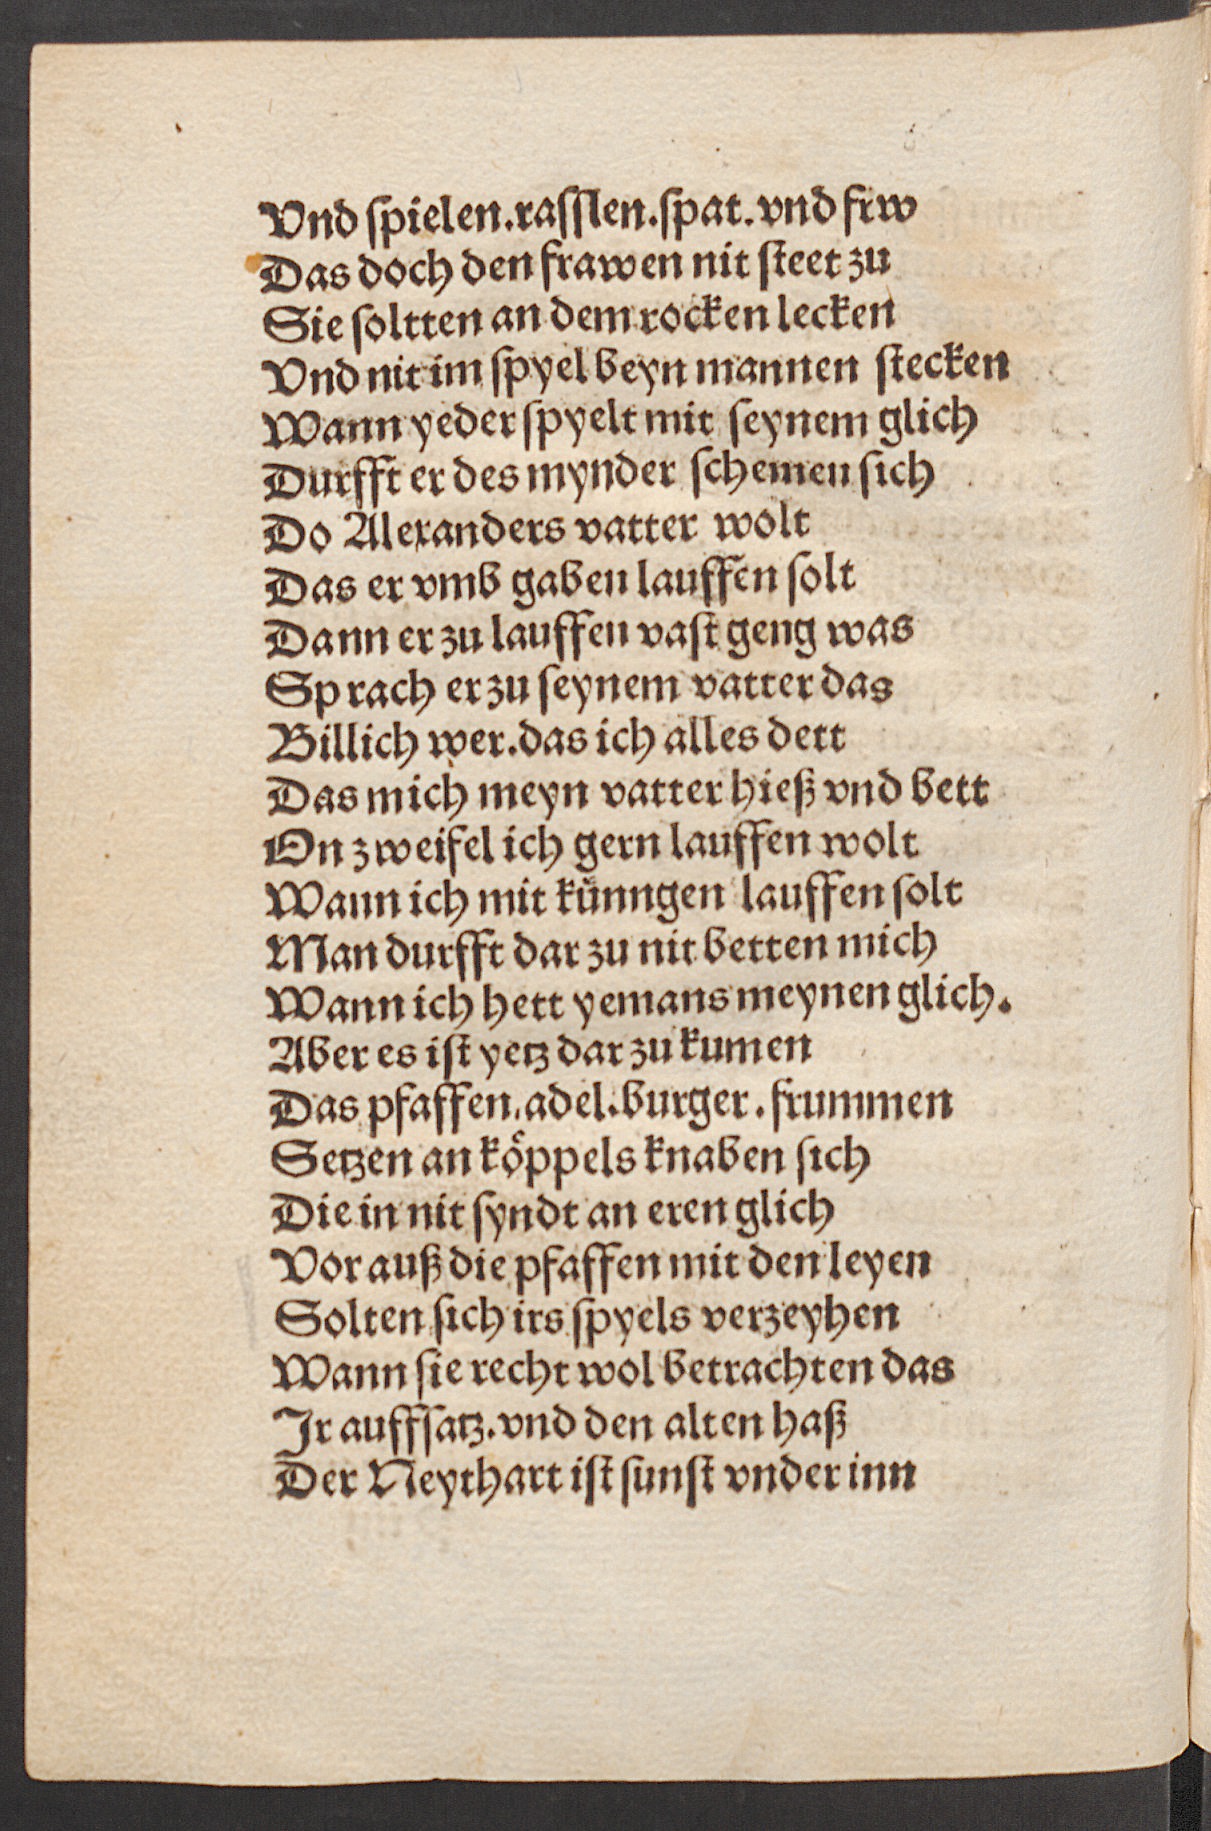 Vnd ſpielen.raſſlen.ſpat.vnd frw
Das doch den frawen nit ſteet zu
Sie ſoltten an dem rocken lecken
Vnd nit im ſpyel beyn mannen ſtecken
Wann yeder ſpyelt mit ſeynem glich
Durfft er des mynder ſchemen ſich
Do Alexanders vatter wolt
Das er vmb gaben lauffen ſolt
Dann er zu lauffen vaſt geng was
Sprach er zu ſeynem vatter das
Billich wer.das ich alles dett
Das mich meyn vatter hieß vnd bett
On zweifel ich gern lauffen wolt
Wann ich mit künngen lauffen ſolt
Man durfft dar zu nit betten mich
Wann ich hett yemans meynen glich.
Aber es iſt yetz dar zu kumen
Das pfaffen.adel.burger.frummen
Setzen an koͤppels knaben ſich
Die in nit ſyndt an eren glich
Vor auß die pfaffen mit den leyen
Solten ſich irs ſpyels verzeyhen
Wann ſie recht wol betrachten das
Jr auffſatz.vnd den alten haß
Der Neythart iſt ſunſt vnder inn